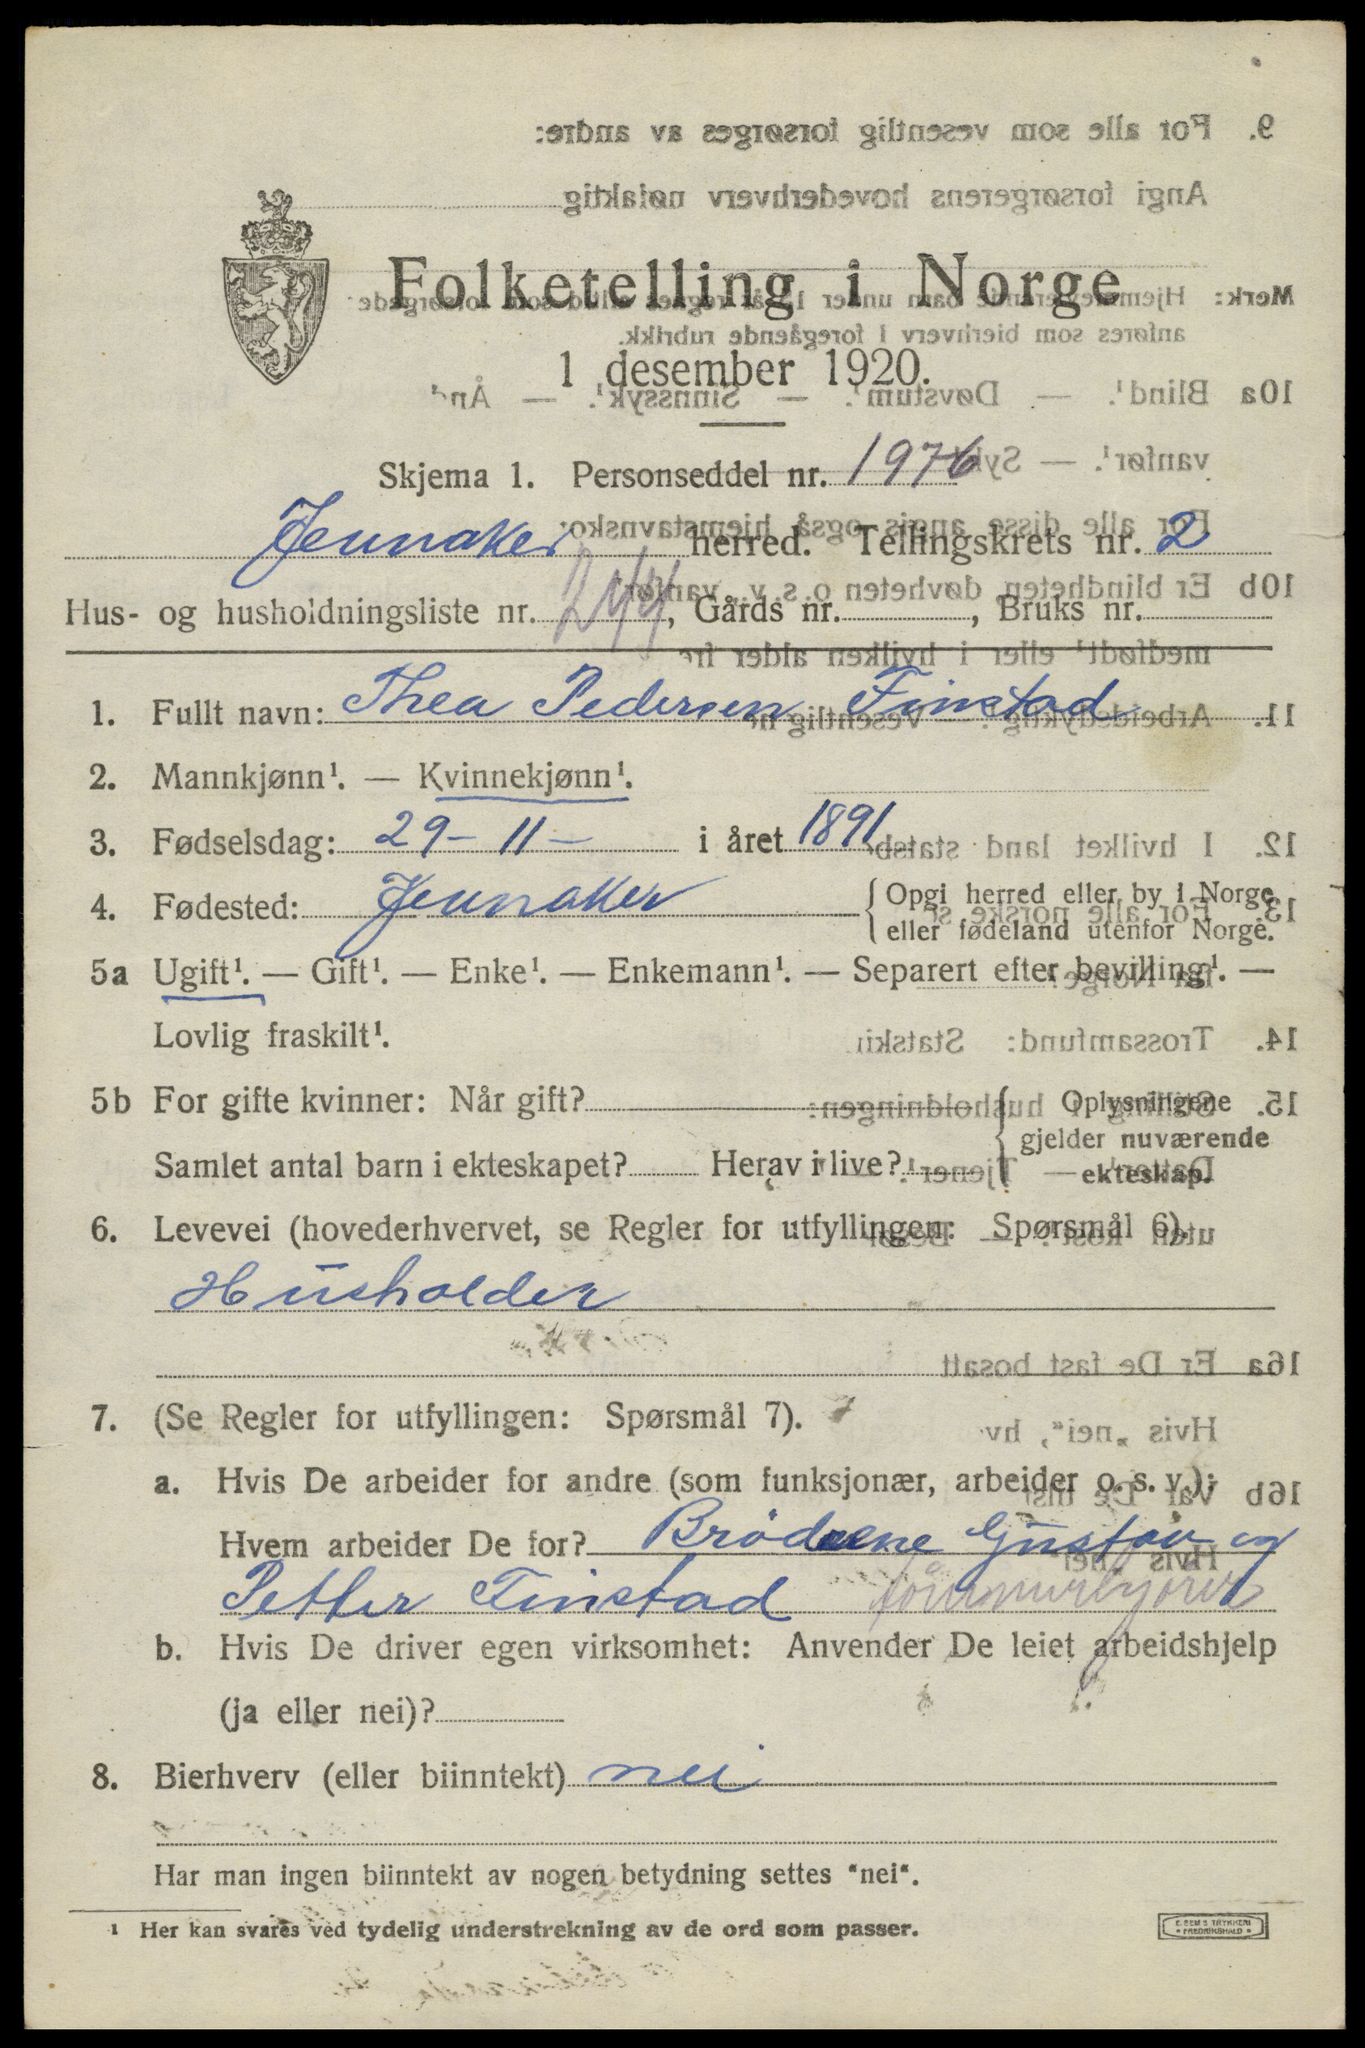 Folketelling i Norge
1 desember 1920.
Skjema 1. Personseddel nr. 1976
Jevnaker herred. Tellingskrets nr. 2
Hus- og husholdningsliste nr. 244, Gårds nr. , Bruks nr.
1. Fullt navn: Thea Pedersen Finstad
2. Mannkjønn¹. — Kvinnekjønn¹.
3. Fødselsdag: 29 - 11 - i året 1891
4. Fødested: Jevnaker { Opgi herred eller by i Norge
eller fødeland utenfor Norge.
5a Ugift¹. — Gift¹. — Enke¹. — Enkemann¹. — Separert efter bevilling¹. —
Lovlig fraskilt¹.
5b For gifte kvinner: Når gift? { Oplysningene
gjelder nuværende
Samlet antal barn i ekteskapet? Herav i live? ekteskap.
6. Levevei (hovederhvervet, se Regler for utfyllingen: Spørsmål 6).
Husholder
7. (Se Regler for utfyllingen: Spørsmål 7).
a. Hvis De arbeider for andre (som funksjonær, arbeider o. s. v.):
Hvem arbeider De for? Brödrene Gustav og
Petter Finstad tömmerkjörer
b. Hvis De driver egen virksomhet: Anvender De leiet arbeidshjelp
(ja eller nei)?
8. Bierhverv (eller biinntekt) nei
Har man ingen biinntekt av nogen betydning settes "nei".
¹ Her kan svares ved tydelig understrekning av de ord som passer.
E. SEM'S TRYKKERI
FREDRIKSHALD